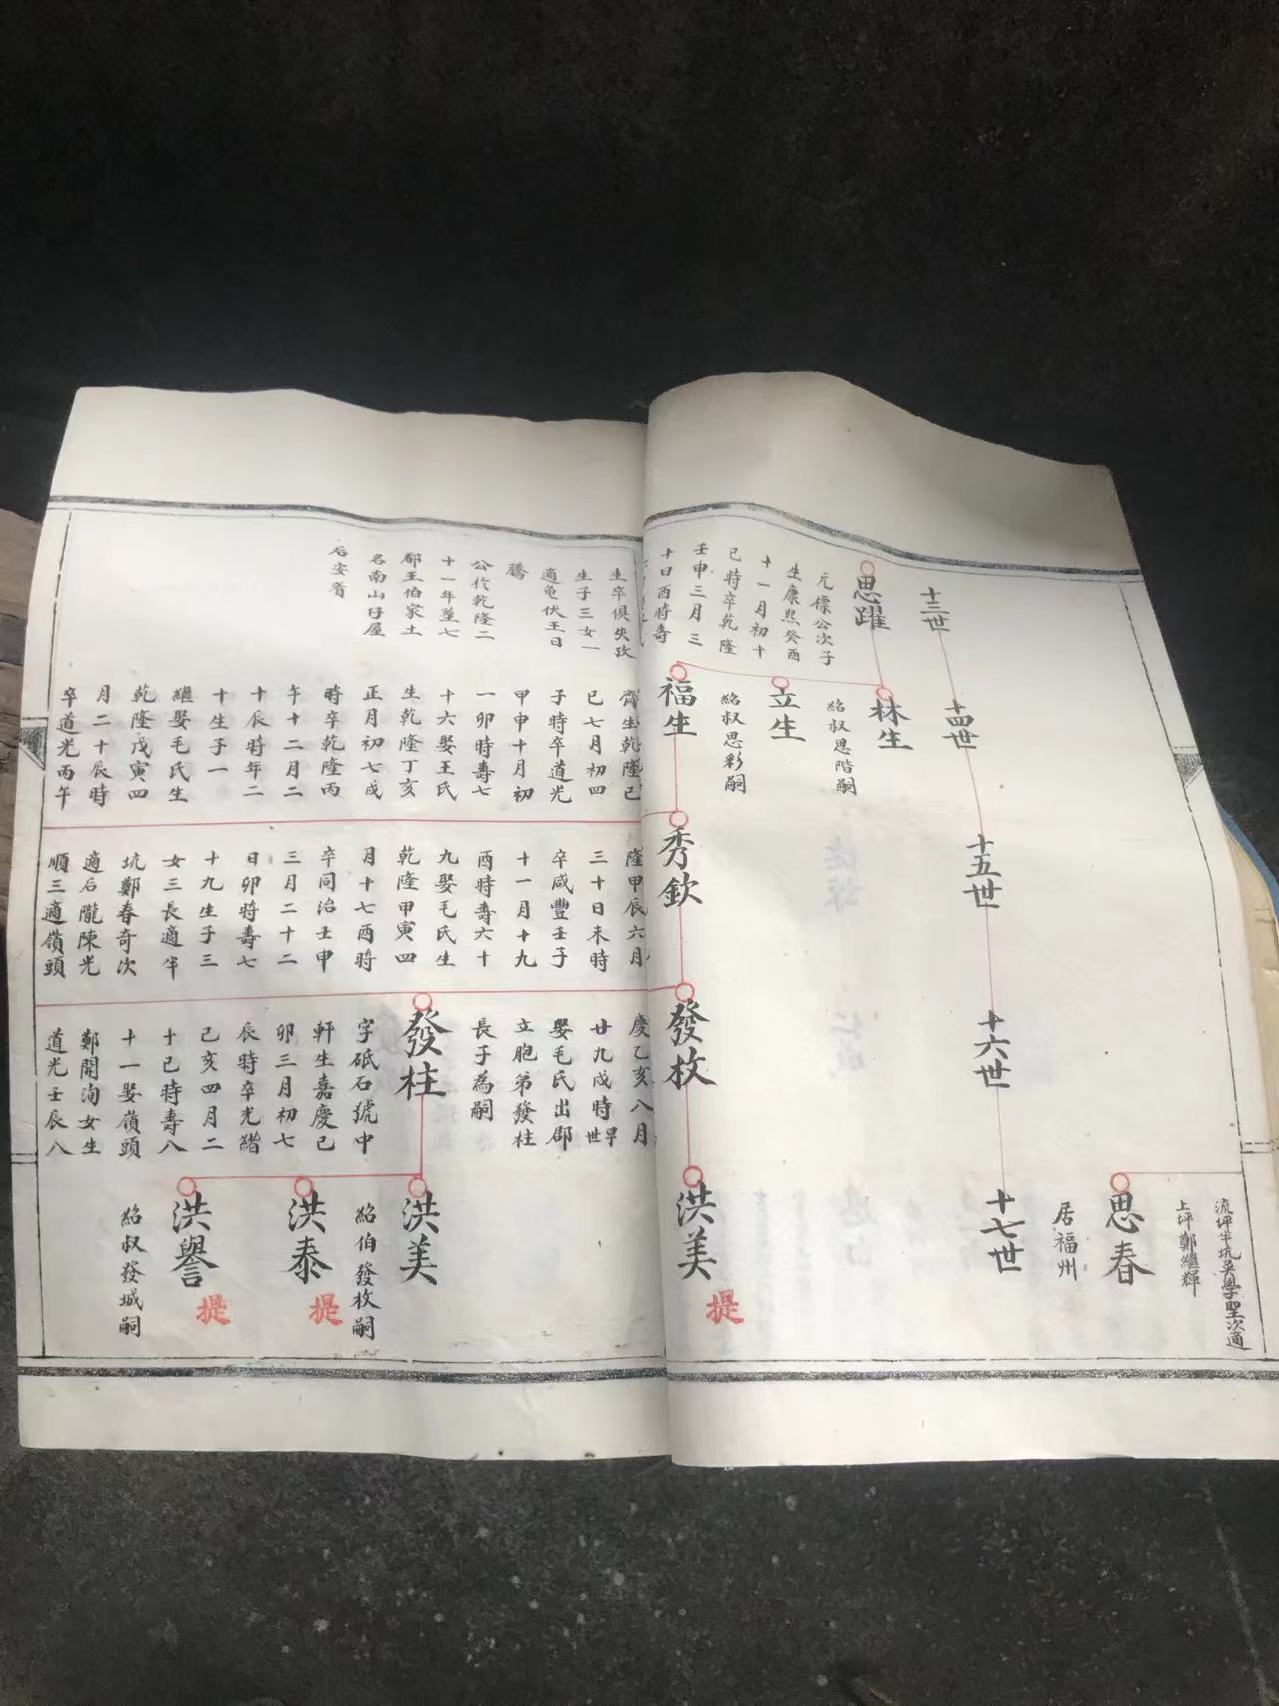 流坪半坑吳學聖次適
上坪鄭繼輝
思春
居福州
十三世
十四世
十五世
十六世
十七世
思躍
元標公次子
生康熙癸酉
十一月初十
巳時卒乾隆
壬申三月三
十日酉時壽
生卒俱失攷
生子三女一
適龟伏王日
騰
公作乾隆二
十一年葬七
都王伯家土
名南山仔屋
后安着
林生
紹叔思階嗣
立生
紹叔思彩嗣
福生
齊生乾隆己
巳七月初四
子時卒道光
甲申十月初
一卯時壽七
十六娶王氏
生乾隆丁亥
正月初七戌
時卒乾隆丙
午十二月二
十辰時年二
十生子一
繼娶毛氏生
乾隆戊寅四
月二十辰時
卒道光丙午
秀欽
隆甲辰六月
三十日未時
卒咸豐壬子
十一月十九
酉時壽六十
九娶毛氏生
乾隆甲寅四
月十七酉時
卒同治壬申
三月二十二
日卯時壽七
十九生子三
女三長適半
坑鄭春奇次
適后隴陳光
順三適嶺頭
發枚
慶乙亥八月
廿九戌時早世
娶毛氏出郡
立胞弟發柱
長子為嗣
發柱
字砥石號中
軒生嘉慶己
卯三月初七
辰時卒光緒
己亥四月二
十巳時壽八
十一娶嶺頭
鄭開洵女生
道光壬辰八
洪美
提
洪美
紹伯發枚嗣
洪泰
提
洪譽
提
紹叔發城嗣